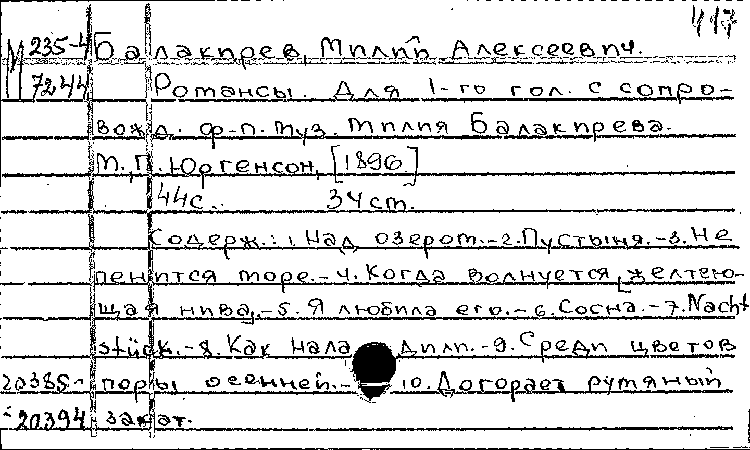 417
М 235-4 Балакирев, Милий Алексеевич.
7244 Романсы. Для 1-го гол. с сопро-
вожд. ф-п. Муз. Милия Балакирева.
М., П. Юргенсон, [1896]
44с. 34 ст.
Содерж.: 1. Над озером.-2. Пустыня.-3. Не
пенится море.-4. Когда волнуется желтею-
щая нива,-5. Я любила его.-6. Сосна.-7. Nacht
stück.-8. Как нала дили.-9. Среди цветов
20385- поры осенней.- 10. Догорает румяный
-20394 закат.